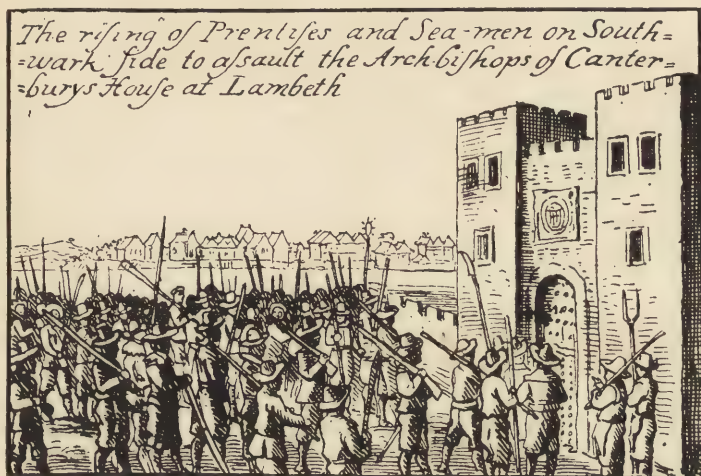 The riſing of Prentiſes and Sea-men on South=
=wark ſide to aſsault the Arch-biſhops of Canter=
=burys Houſe at Lambeth